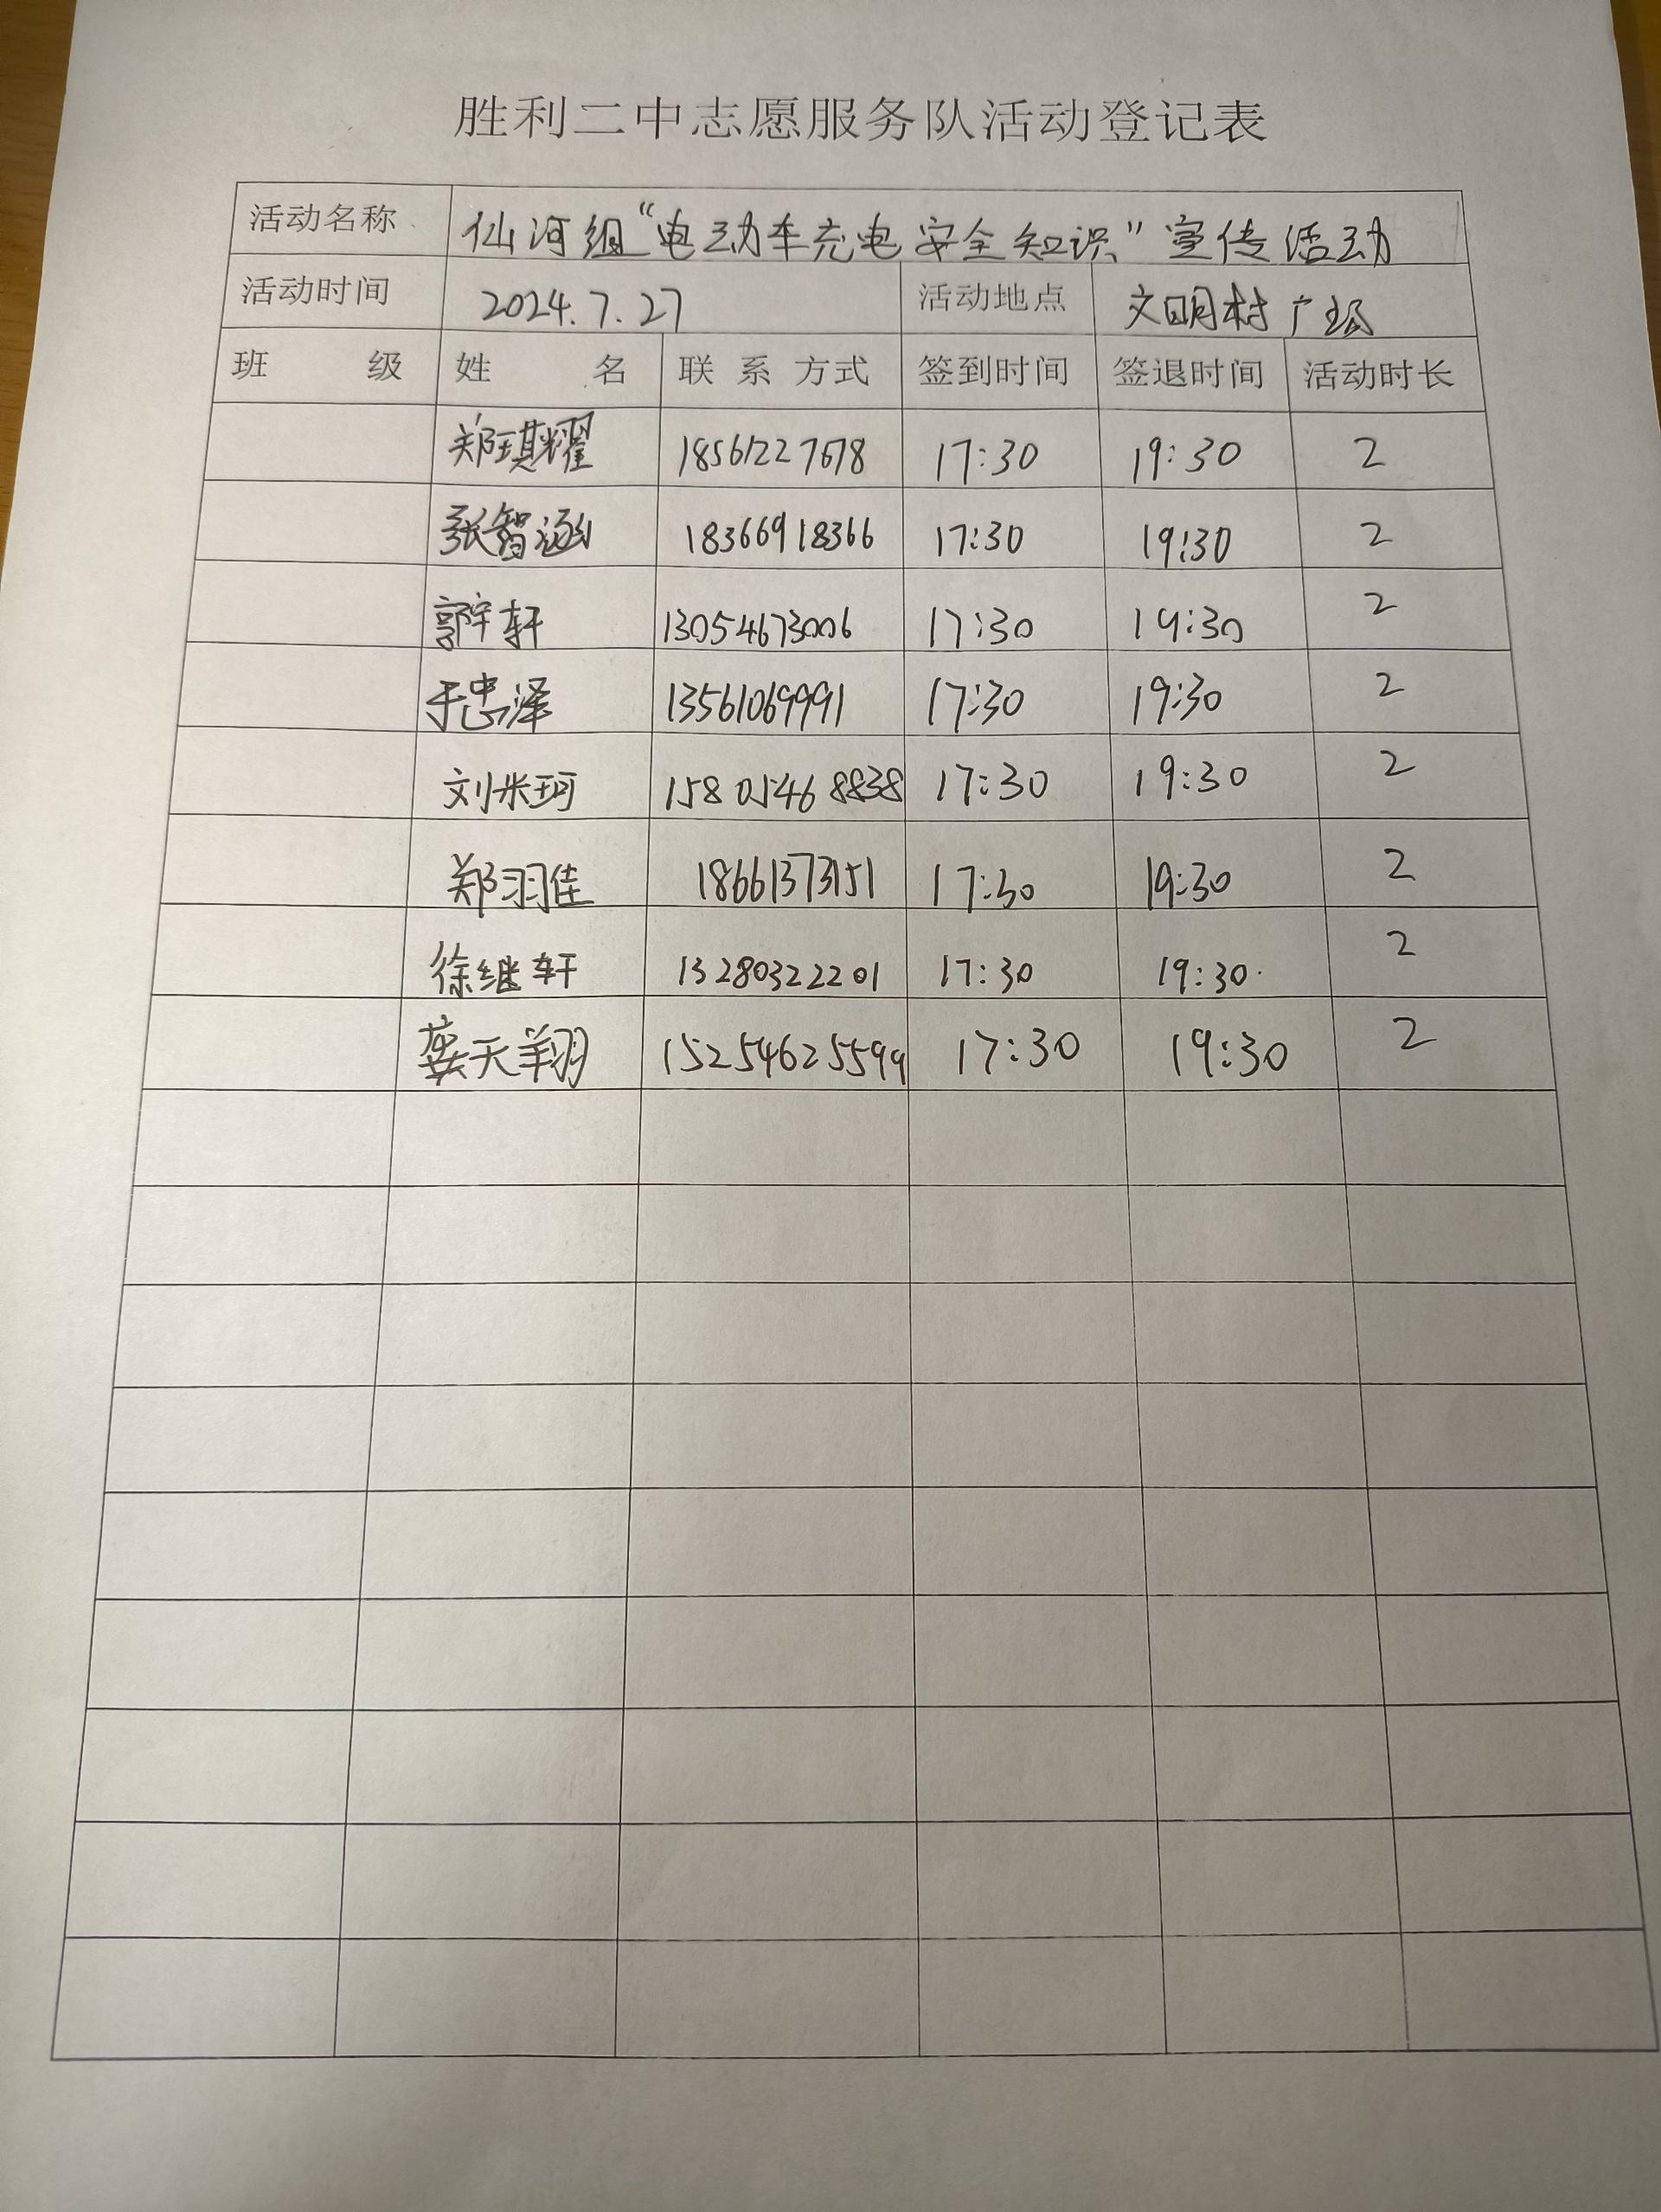 胜利二中志愿服务队活动登记表
活动名称 仙河组“电动车充电安全知识”宣传活动
活动时间 2024.7.27 活动地点 文明村广场
班 级 姓 名 联系方式 签到时间 签退时间 活动时长
郑琪耀 18561227678 17:30 19:30 2
张智涵 18366918366 17:30 19:30 2
郭宇轩 13054673006 17:30 19:30 2
于忠泽 13561069991 17:30 19:30 2
刘米珂 15805468838 17:30 19:30 2
郑羽佳 18661373151 17:30 19:30 2
徐继轩 13280322201 17:30 19:30 2
龚天翔 15254625599 17:30 19:30 2